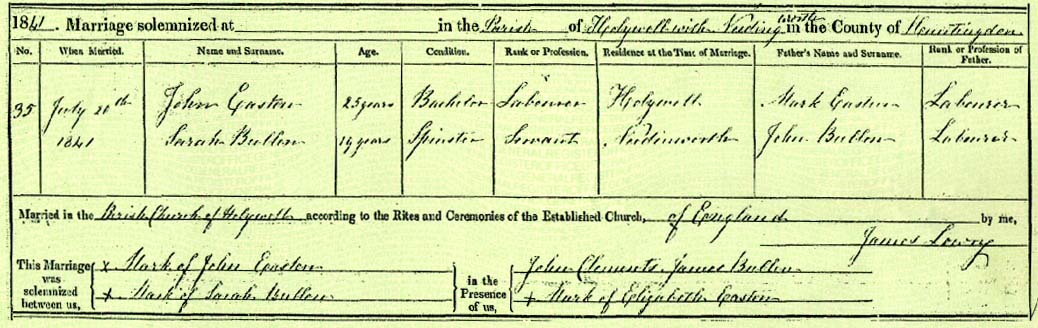 1841. Marriage solemnized at in the Parish of Holywell with Needingworth in the County of Huntingdon
No. When Married. Name and Surname. Age. Condition. Rank or Profession. Residence at the Time of Marriage. Father's Name and Surname. Rank or Profession of Father.
35 July 20th John Easton 25 years Bachelor Labourer Holywell Mark Easton Labourer
1841 Sarah Bullen 19 years Spinster Servant Needinworth John Bullen Labourer
Married in the Parish Church of Holywell according to the Rites and Ceremonies of the Established Church, of England by me,
James Lowry
This Marriage was solemnized between us, x Mark of John Easton in the Presence of us, John Clements James Bullen
x Mark of Sarah Bullen + Mark of Elizabeth Easton